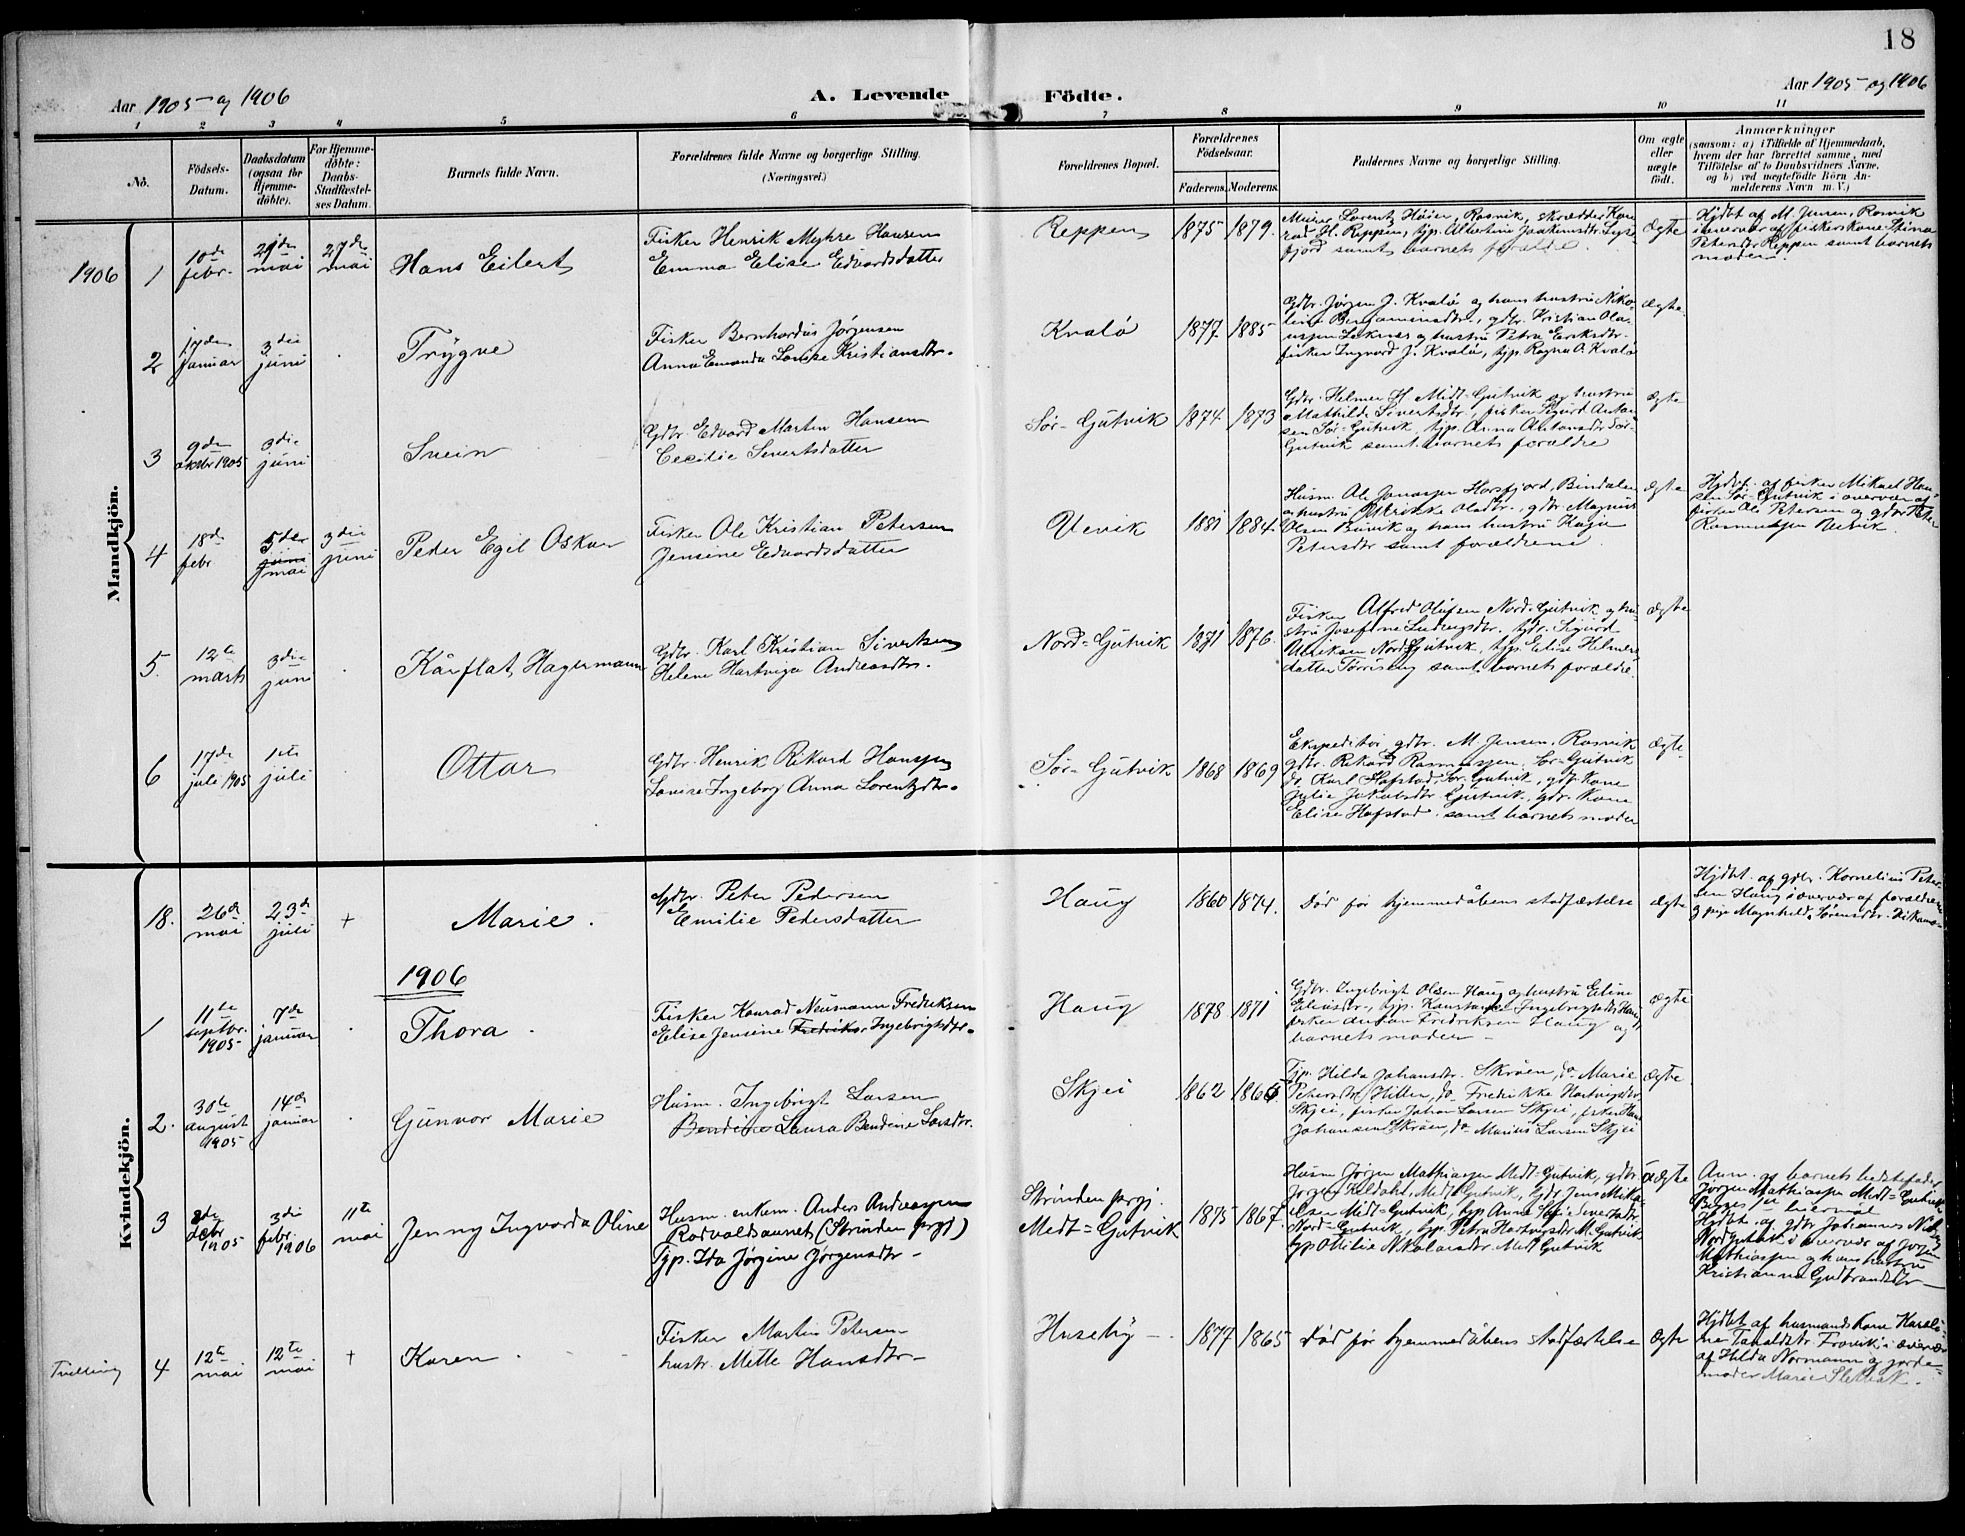 18
Aar 1905 og 1906
A. Levende Födte.
Aar 1905 og 1906
1 2 3 4 5 6 7 8 9 10 11
No.
Födsels-
Datum.
Daabsdatum
(ogsaa for
Hjemme-
döbte).
For Hjemme-
döbte:
Daabs-
Stadfæstel-
ses Datum.
Barnets fulde Navn.
Forældrenes fulde Navne og borgerlige Stilling.
(Næringsvei.)
Forældrenes Bopæl.
Forældrenes
Födselsaar.
Faderens. Moderens.
Faddernes Navne og borgerlige Stilling.
Om ægte
eller
uægte
födt.
Anmærkninger
(saasom: a) i Tilfælde af Hjemmedaab,
hvem der har forrettet samme, med
Tilföielse af to Daabsvidners Navne,
og b) ved uægtefödte Börn An-
melderens Navn m. V.)
Mandkjön.
1906
1
10de
febr.
21de
mai
27de
mai
Hans Eilert
Fisker Henrik Myhre Hansen
Emma Elise Edvardsdatter
Reppen
1875 1879.
Lorentz Høier, Rosvik, skrædder Kon-
rad H. Reppen, tjp. Albertine Joakimsdtr
fjord samt barnets forældre.
Ægte
Hjdbt af M. Jensen, Rosvik
i overvær af fiskers kone Stina
Petersdtr Reppen samt barnets
moder.
2
17de
januar
3die
juni
Trygve
Fisker Bernhardus Jørgensen
Anna Emanda Lovise Kristiansdtr.
Kvalø
1877. 1885
Gdbr. Jørgen J. Kvalø og hans hustru Niko-
line Benjaminsdtr, gdbr. Kristian Ola-
ussen Leknes og hustru Petra Eriksdtr.
fisker Ingvard J. Kvalø, tjp. Ragna O. Kvalø
Ægte.
3
9de
oktbr 1905
3die
juni
Svein
Gdbr. Edvard Martin Hansen
Cecilie Sivertsdatter
Sør-Gutvik
1874. 1873
Gdbr. Helmer H. Midt-Gutvik og hustru
Mathilde Sivertsdtr, fisker Sigurd Anton-
sen Sør-Gutvik, tjp. Anna Antonsdtr Sør-
Gutvik samt barnets forældre
Ægte
4
18de
febr
5de
juni
mai
3die
juni
Peder Egil Oskar
Fisker Ole Kristian Petersen
Jensine Edvardsdatter
Ulvik
1881 1884.
Husm. Ole Jonassen Horsfjord, Bindalen
og hustru Olsdtr., gdbr Magnus
Olsen og hans hustru Kaja
Petersdtr samt forældrene.
Ægte
Hjdbt. af fisker Mikael Han-
sen Sør-Gutvik i overvær af
fisker Ole Petersen og gdbr Peter
Rasmussen Ulvik.
5.
12te
marts
3die
juni
Kårflat Hagermann
Gdbr. Karl Kristian Sivertsen
Helene Hartviga Andreasdtr.
Nord-Gutvik
1871 1876.
Fisker Alfred Olufsen Nord-Gutvik og hu-
stru Josefine Ludvigsdtr. Gdbr. Sigurd
Ulriksen Nord-Gutvik, tjp. Elise Helmers-
datter samt barnets forældre.
Ægte
6
17de
juli 1905
1ste
juli
Ottar
Gdbr. Henrik Rikard Hanssen
Lovise Ingeborg Anna Lorentzdtr.
Sør-Gutvik
1868 1869
Ekspeditør gdbr. M. Jensen, Rosvik
gdbr. Rikard Rasmussen, Sør-Gutvik
do Karl Hofstad, Sør-Gutvik, gdbr. kone
Julie Jakobsdtr. Gutvik, gdbr. kone
Elise Hofstad. samt barnets moder
Ægte.
Kvindekjön.
18.
26de
mai
23de
juli
+
Marie.
Gdbr. Peter Pedersen
Emilie Pedersdatter
Haug
1860 1874.
Død før hjemmedåbens stadfæstelse
Ægte
Hjdbt. af gdbr. Kornelius Peter-
sen Haug i overvær af forældrene
og pige Magnhild Sørensdtr.
1906
1
11te
septbr.
1905
7de
januar
Thora
Fisker Konrad Neumann Fredriksen
Elise Jensine Ingebrigtsdtr.
Haug
1878 1871
Gdbr. Ingebrigt Olsen Haug og hustru Eline
Eliasdtr., tjp. Konstanse Ingebrigtsdtr Haug,
fisker Anton Fredriksen Haug og
barnets moder
Ægte
2.
30te
august
1905
14de
januar
Gunvor Marie
Husm. Ingebrigt Larsen
Bendine Laura Bendine Larsdtr.
Skjei
1862
Tjp. Hilda Johansdtr. Skrøen, do Marie
Petersdtr Hiller, do Fredrikke Hartvigsdtr
Skjei, fisker Johan Larsen Skjei, fisker Hans
Johansen Skrøen, do Marius Larsen Skjei
Ægte
3
1905
3die
febr.
1906
11te
mai
Jenny Ingvarda Oline
Husm. enkem. Anders Andreassen
Rodvaldsaunet (Strinden prgj)
Tjp. Ida Jørgine Jørgensdtr
Strinden prgj.
Midt-Gutvik
1875 1867.
Husm Jørgen Mathiassen Midt-Gutvik, gdbr
Jørgen Midt-Gutvik, gdbr. Jens Mika-
elsen Midt-Gutvik, tjp Anna Sofie Sivertsdtr.
Nord-Gutvik, tjp. Petra Hartvigsdtr M. Gutvik
tjp Ottilie Nikolaisdtr. Midt-Gutvik
Uægte
Anm. af barnets bedstefader
Jørgen Mathiassen Midt-Gutvik
Begges leiermål
Hjdbt. af gdbr Johannes
Nordgutvik i overvær af Jørgen
Mathiassen og hans hustru
Kristianna Gudbrandsdtr
Tvilling
4
12te
mai
12te
mai
+
Karen
Fisker Martin Petersen
hustr. Mette Hansdtr
Huseby
1877 1865
Død før hjemmedåbens stadfæstelse
Ægte
Hjdbt af husmands kone Karoli-
ne i overvær
af Hilda Normann og jorde-
moder Marie Sletbak.